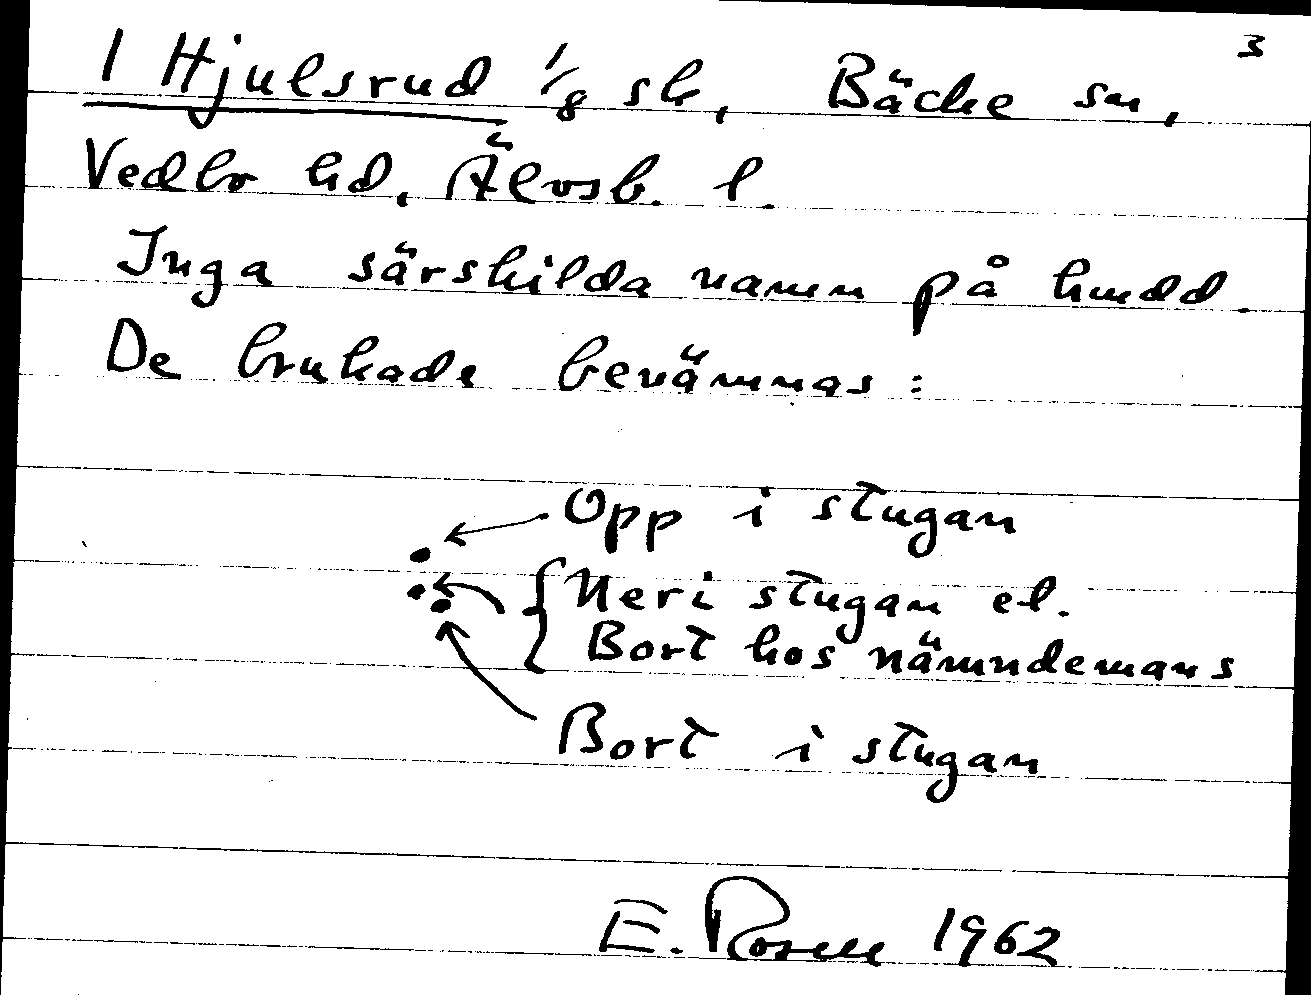 3
1 Hjulsrud 1/8 sk, Bäcke sn,
Vedbo hd, Älvsb. l.
Inga särskilda namn på hmdd.
De brukade benämnas:
Opp i stugan
Neri stugan el.
Bort hos nämndemans
Bort i stugan
E. Rosell 1962